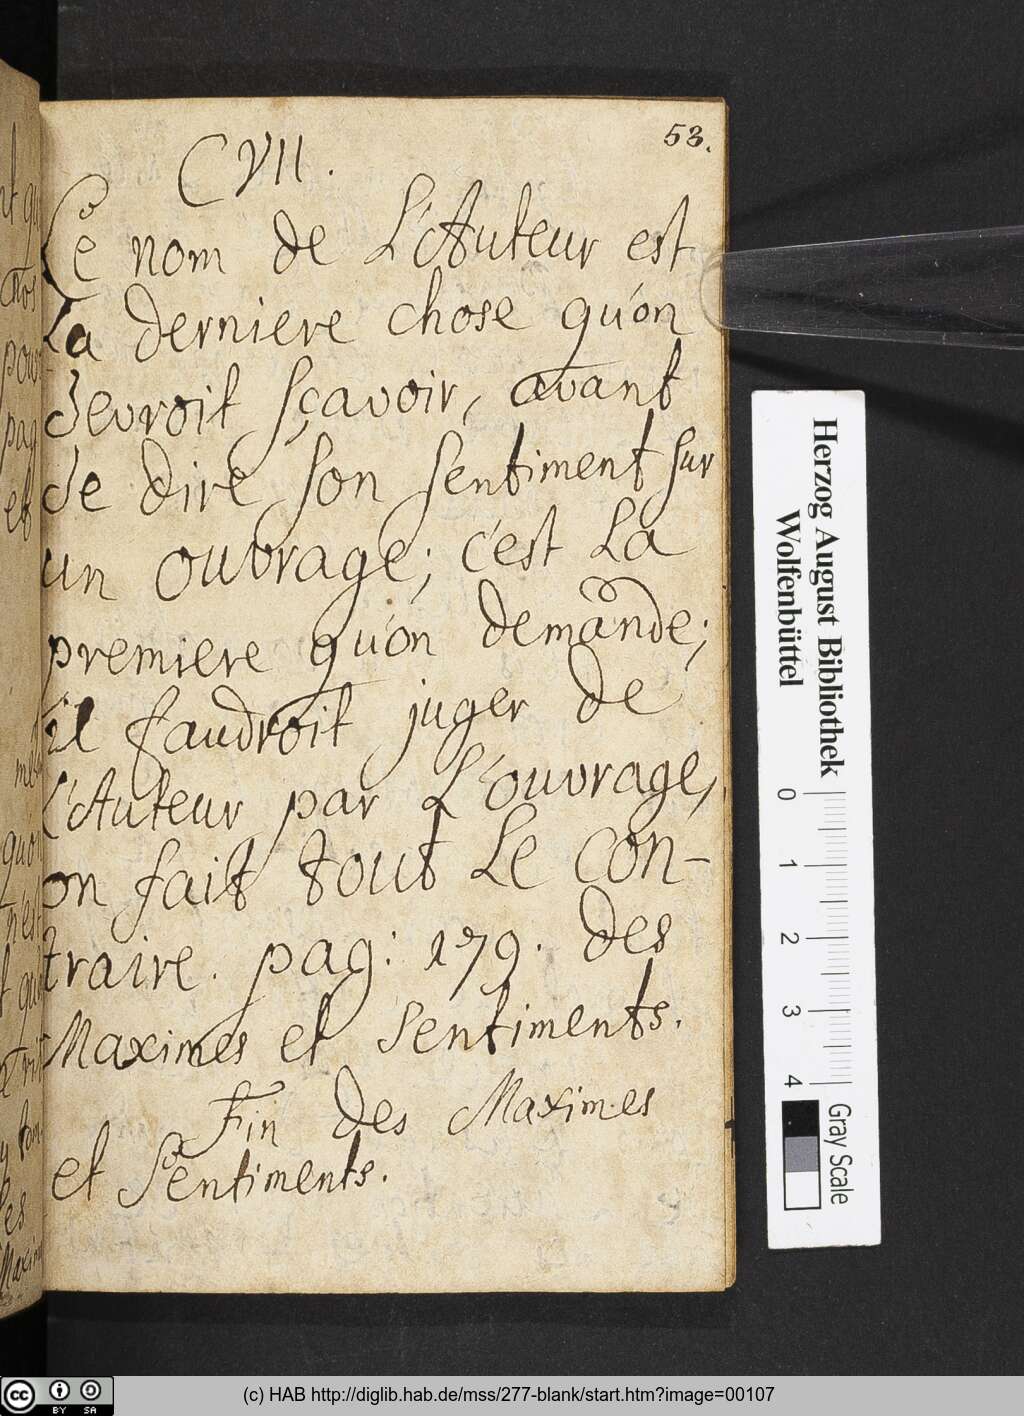 53.
CVII.
Le nom de L'Auteur est
La derniere chose qu'on
devroit sçavoir, avant
de dire son sentiment sur
un ouvrage; c'est La
premiere qu'on demande;
il faudroit juger de
L'Auteur par L'ouvrage,
on fait tout Le con-
traire. pag: 179. des
Maximes et Sentiments.
Fin des Maximes
et Sentiments.
Herzog August Bibliothek
Wolfenbüttel
0 1 2 3 4
Gray Scale
cc BY SA
(c) HAB http://diglib.hab.de/mss/277-blank/start.htm?image=00107